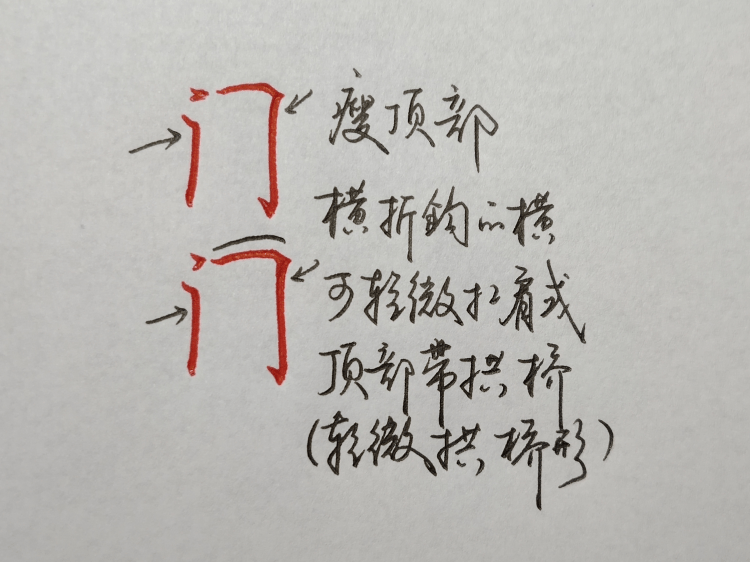 门
瘦顶部
横折鈎的横
门
可轻微扛肩或
顶部带拱桥
(轻微拱桥形)